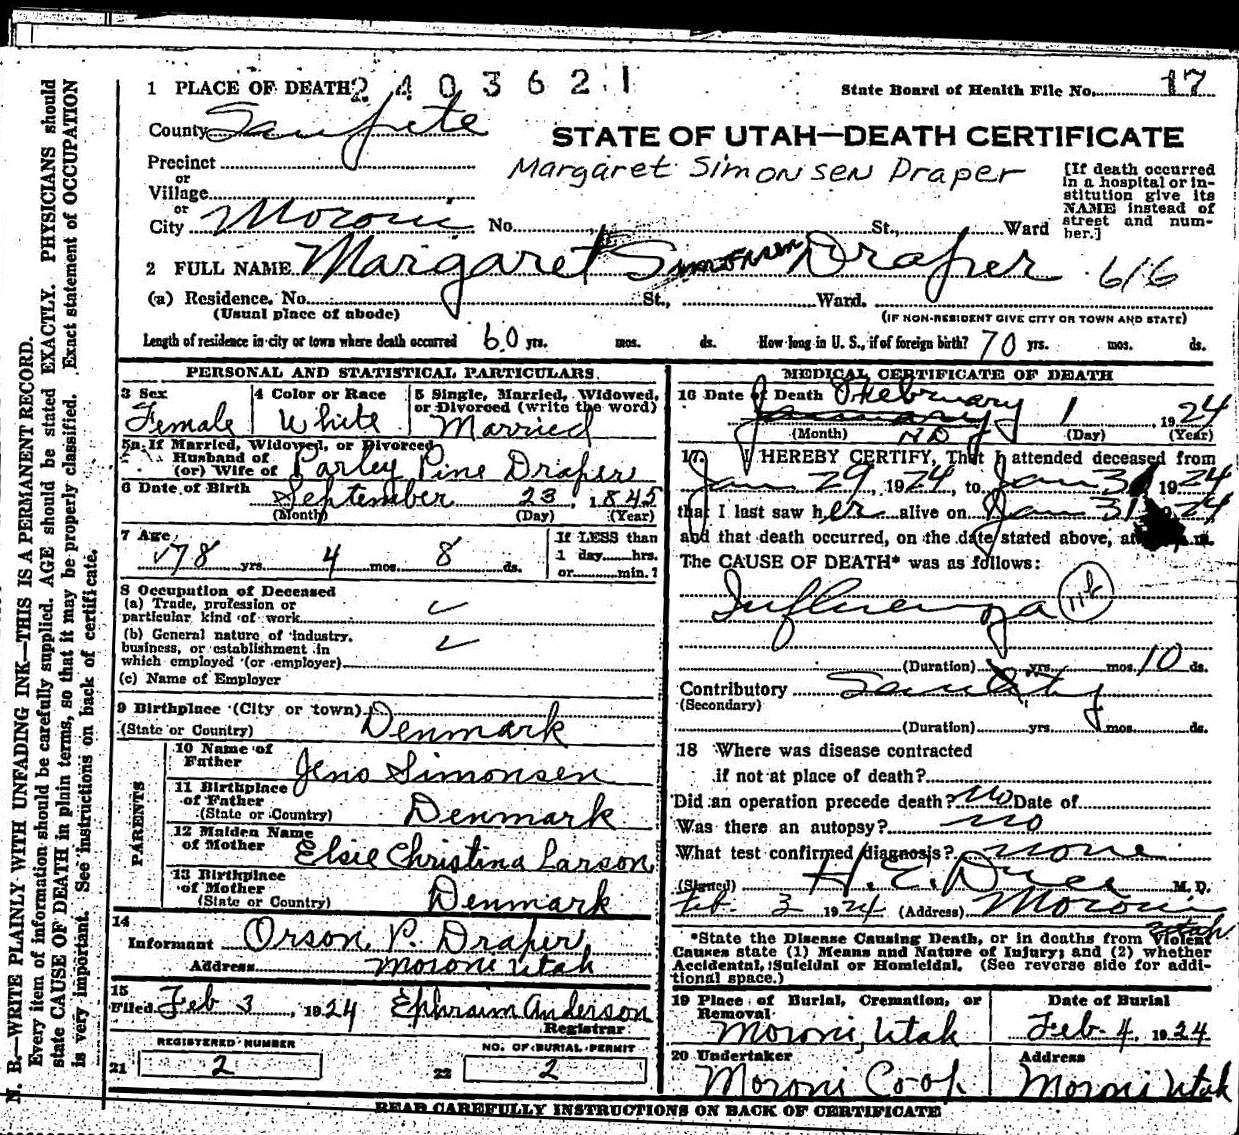 1 PLACE OF DEATH 2403621
State Board of Health File No. 17
County Sanpete
STATE OF UTAH—DEATH CERTIFICATE
Precinct
Margaret Simonsen Draper
[If death occurred in a hospital or institution give its NAME instead of street and number.]
or
Village
or
City Moroni No. St., Ward
2 FULL NAME Margaret Simonsen Draper 616
(a) Residence. No. St., Ward.
(Usual place of abode) (IF NON-RESIDENT GIVE CITY OR TOWN AND STATE)
Length of residence in city or town where death occurred 60 yrs. mos. ds. How long in U. S., if of foreign birth? 70 yrs. mos. ds.
PERSONAL AND STATISTICAL PARTICULARS.
3 Sex
Female
4 Color or Race
White
5 Single, Married, Widowed,
or Divorced (write the word)
Married
5a If Married, Widowed, or Divorced
Husband of
(or) Wife of Parley Pine Draper
6 Date of Birth
September 23, 1845
(Month) (Day) (Year)
7 Age
78 yrs. 4 mos. 8 ds.
If LESS than
1 day....hrs.
or....min.?
8 Occupation of Deceased
(a) Trade, profession or
particular kind of work
(b) General nature of industry,
business, or establishment in
which employed (or employer)
(c) Name of Employer
9 Birthplace (City or town)
(State or Country) Denmark
PARENTS
10 Name of
Father Jens Simonsen
11 Birthplace
of Father
(State or Country) Denmark
12 Maiden Name
of Mother Elsie Christina Larson
13 Birthplace
of Mother
(State or Country) Denmark
14
Informant Orson P. Draper
Address Moroni Utah
15
Filed Feb 3, 1924 Ephraim Anderson
Registrar
REGISTERED NUMBER
21 2
NO. OF BURIAL PERMIT
22 2
MEDICAL CERTIFICATE OF DEATH
16 Date of Death February 1 1924
(Month) (Day) (Year)
17. I HEREBY CERTIFY, That I attended deceased from
Jan 29, 1924, to Jan 31 1924
that I last saw her alive on Jan 31 1924
and that death occurred, on the date stated above, at m.
The CAUSE OF DEATH* was as follows:
Influenza
(Duration) yrs. mos. 10 ds.
Contributory
(Secondary)
(Duration) yrs. mos. ds.
18 Where was disease contracted
if not at place of death?
Did an operation precede death? No Date of
Was there an autopsy? no
What test confirmed diagnosis? none
(Signed) H. E. M. D.
Feb. 3 1924 (Address) Moroni
Utah
*State the Disease Causing Death, or in deaths from Violent
Causes state (1) Means and Nature of Injury; and (2) whether
Accidental, Suicidal or Homicidal. (See reverse side for addi-
tional space.)
19 Place of Burial, Cremation, or
Removal
Moroni, Utah
Date of Burial
Feb. 4, 1924
20 Undertaker
Moroni Coop
Address
Moroni Utah
READ CAREFULLY INSTRUCTIONS ON BACK OF CERTIFICATE
N. B.—WRITE PLAINLY WITH UNFADING INK—THIS IS A PERMANENT RECORD.
Every item of information should be carefully supplied. AGE should be stated EXACTLY. PHYSICIANS should
state CAUSE OF DEATH in plain terms, so that it may be properly classified. Exact statement of OCCUPATION
is very important. See instructions on back of certificate.